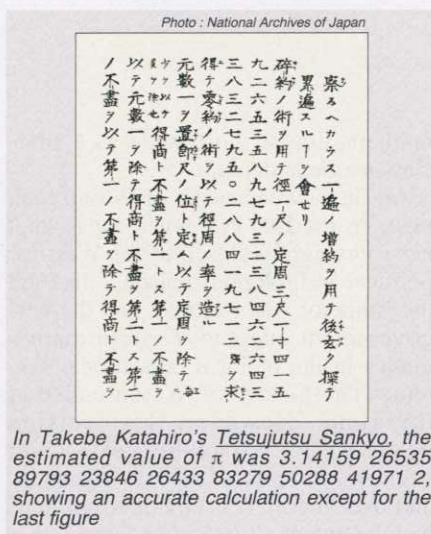 Photo : National Archives of Japan
察ルヘカラス一遍ノ増約ヲ用テ後玄ク探テ
累遍スルヿヲ會セリ
碎約ノ術ヲ用テ徑一尺ノ定周三尺一寸四一五
九二六五三五八九七九三二三八四六二六四三
三八三二七九五〇二八八四一九七一二強ヲ求
得テ零約ノ術ヲ以テ徑周ノ率ヲ造ル
元數一ヲ置即尺ノ位ト定ム以テ定周ヲ除テ毎
得商ト不盡ヲ第一トス第一ノ不盡ヲ
以テ元數一ヲ除テ得商ト不盡ヲ第二トス第二
ノ不盡ヲ以テ第一ノ不盡ヲ除テ得商ト不盡ヲ
In Takebe Katahiro's Tetsujutsu Sankyo, the
estimated value of π was 3.14159 26535
89793 23846 26433 83279 50288 41971 2,
showing an accurate calculation except for the
last figure